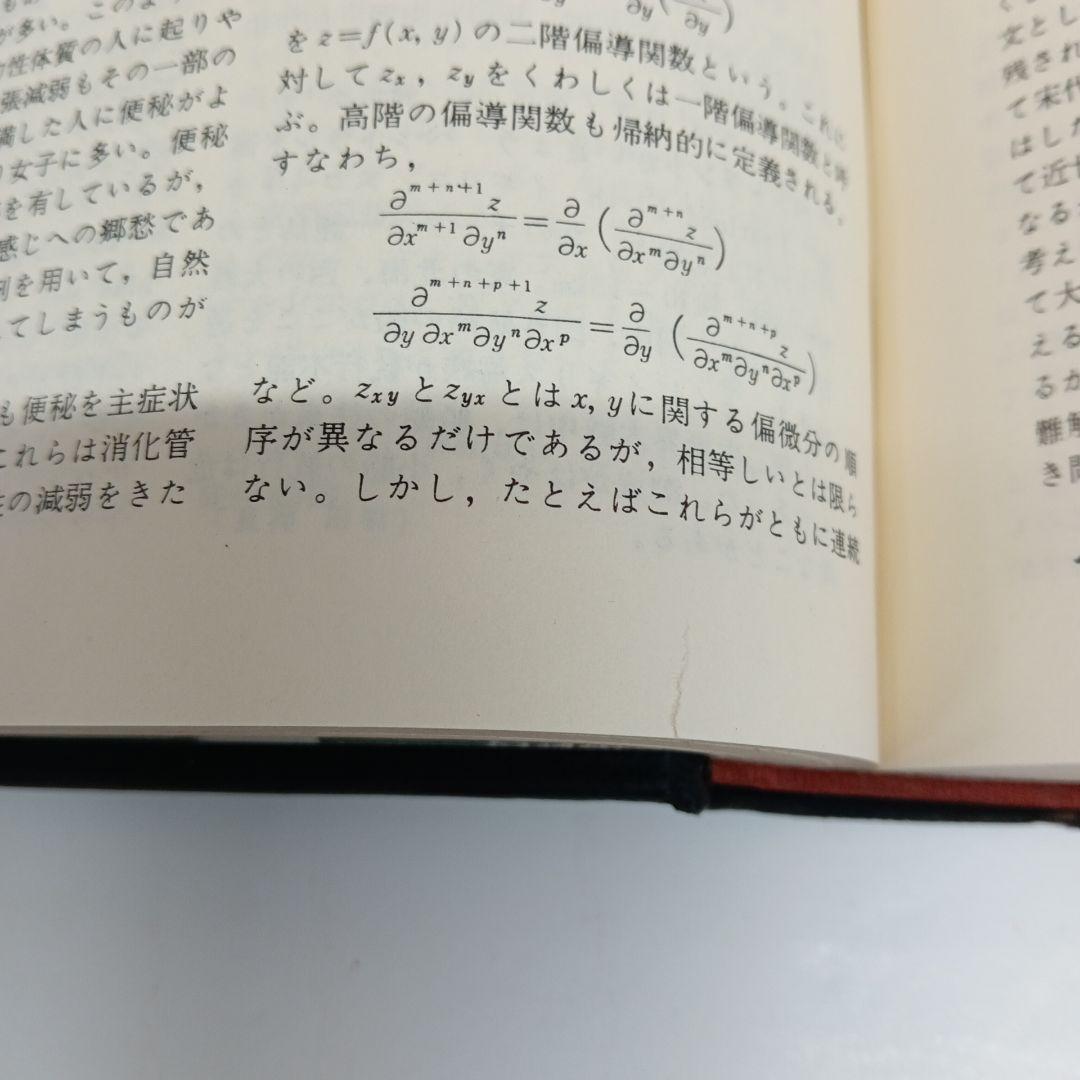 が多い。このよう
性体質の人に起りや
張減弱もその一部の
満した人に便秘がよ
女子に多い。便秘
を有しているが,
感じへの郷愁であ
剤を用いて, 自然
てしまうものが
も便秘を主症状
これらは消化管
の減弱をきた
を z=f(x, y) の二階偏導関数という。これに
対して zₓ, z_y をくわしくは一階偏導関数と呼
ぶ。高階の偏導関数も帰納的に定義される。
すなわち,
∂^{m+n+1}z / ∂x^{m+1}∂y^n = ∂/∂x (∂^{m+n}z / ∂x^m∂y^n)
∂^{m+n+p+1}z / ∂y∂x^m∂y^n∂x^p = ∂/∂y (∂^{m+n+p}z / ∂x^m∂y^n∂x^p)
など。z_{xy} と z_{yx} とは x, y に関する偏微分の順
序が異なるだけであるが, 相等しいとは限ら
ない。しかし, たとえばこれらがともに連続
文とし
残され
て宋代
はした
て近世
なる
考え
て大
える
るか
難解
き問